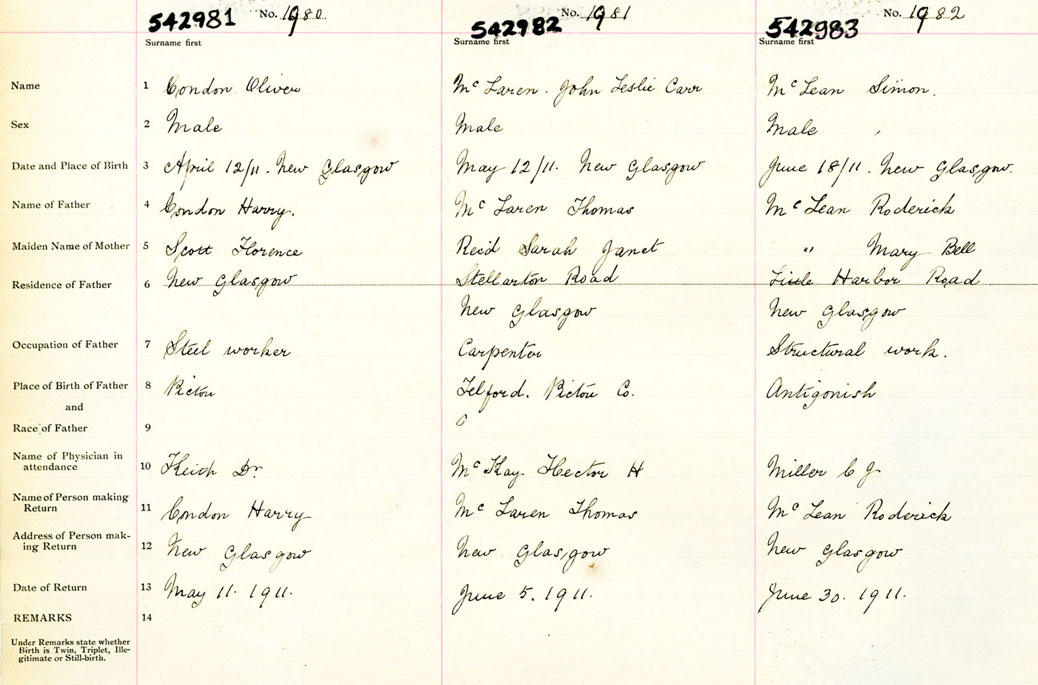 542981 No. 1980. 542982 No. 1981 542983 No. 1982
Surname first Surname first Surname first
Name 1 Condon Oliver McLaren. John Leslie Carr McLean Simon.
Sex 2 Male Male Male
Date and Place of Birth 3 April 12/11. New Glasgow May 12/11. New Glasgow June 18/11. New Glasgow.
Name of Father 4 Condon Harry. McLaren Thomas McLean Roderick
Maiden Name of Mother 5 Scott Florence Reid Sarah Janet " Mary Bell
Residence of Father 6 New Glasgow Stellarton Road Little Harbor Road
New Glasgow New Glasgow
Occupation of Father 7 Steel worker Carpenter Structural work.
Place of Birth of Father 8 Pictou Telford. Pictou Co. Antigonish
and
Race of Father 9
Name of Physician in
attendance 10 Keith Dr. McKay Hector H Miller C J
Name of Person making
Return 11 Condon Harry McLaren Thomas McLean Roderick
Address of Person mak-
ing Return 12 New Glasgow New Glasgow New Glasgow
Date of Return 13 May 11. 1911. June 5. 1911. June 30. 1911.
REMARKS 14
Under Remarks state whether
Birth is Twin, Triplet, Ille-
gitimate or Still-birth.